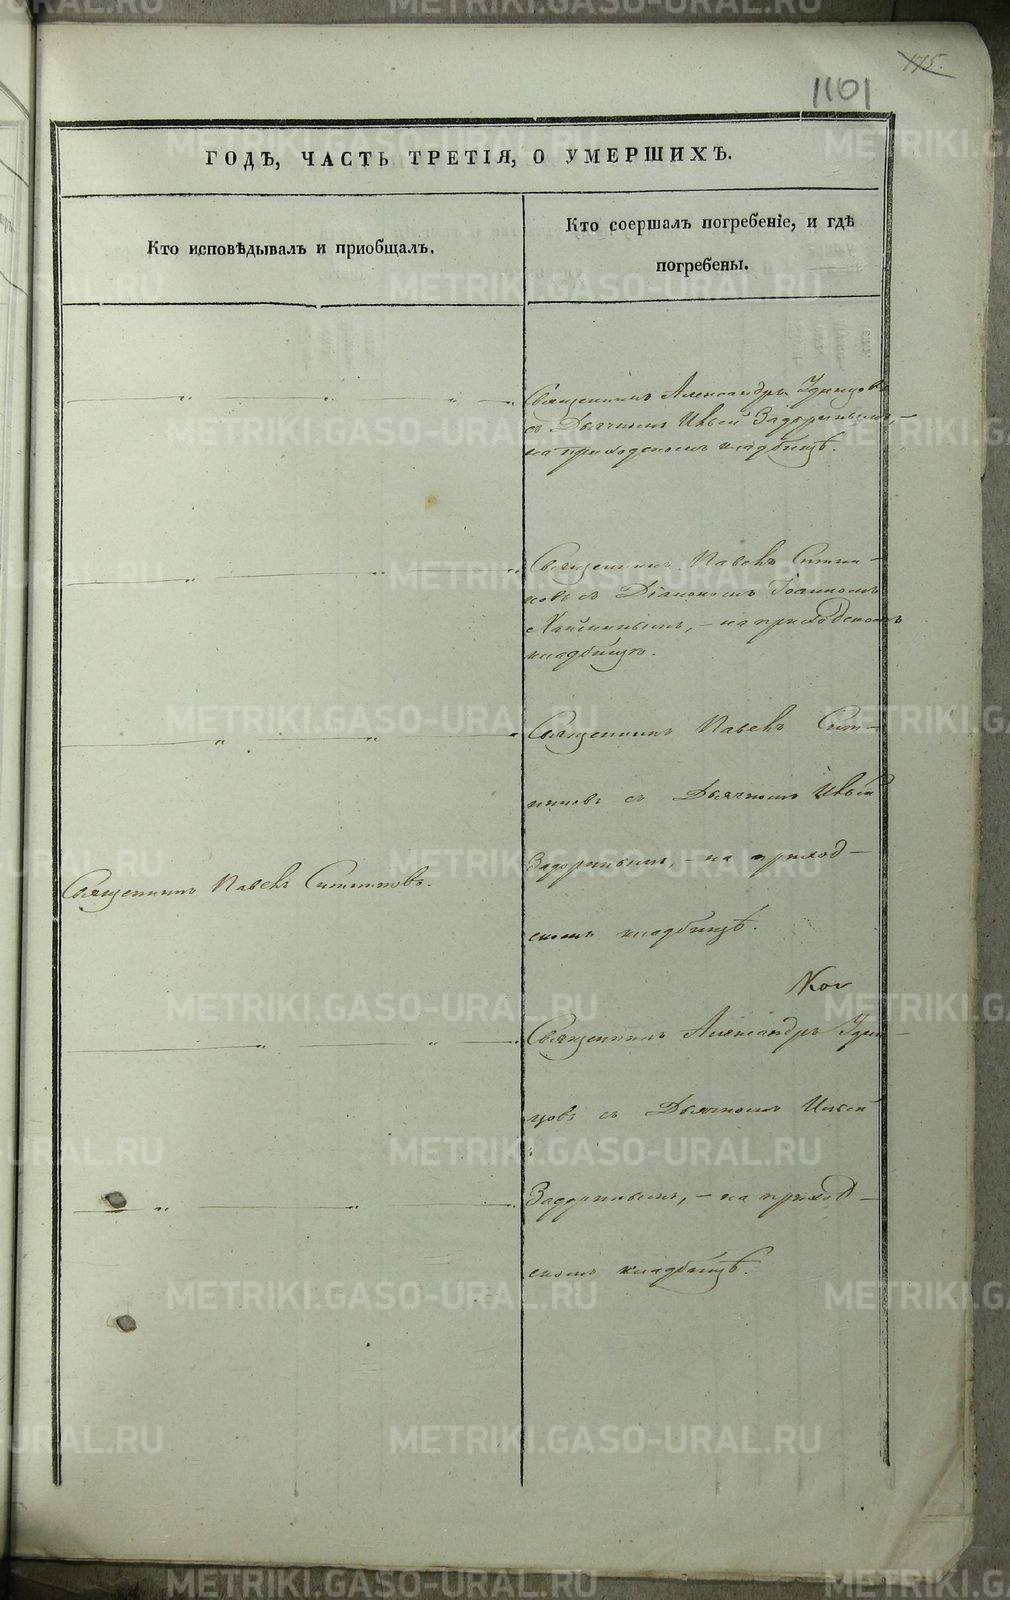 175.
1101
ГОДѢ, ЧАСТЬ ТРЕТІЯ, О УМЕРШИХЪ.
Кто исповѣдывалъ и приобщалъ.
Кто соершалъ погребеніе, и гдѣ
погребены.
Священникъ Александръ Удинцовъ
съ Дьячкомъ Іевлемъ Задоринымъ, —
на приходскомъ кладбищѣ.
Священникъ Павелъ Ситни-
ковъ съ Діакономъ Іоанномъ
— на приходскомъ
кладбищѣ.
Священникъ Павелъ Сит-
никовъ съ Дьячкомъ
Задоринымъ, — на приход-
скомъ кладбищѣ.
Священникъ Павелъ Ситниковъ.
Священникъ Александръ Удин-
цовъ съ Дьячкомъ
Задоринымъ, — на приход-
скомъ кладбищѣ.
METRIKI.GASO-URAL.RU